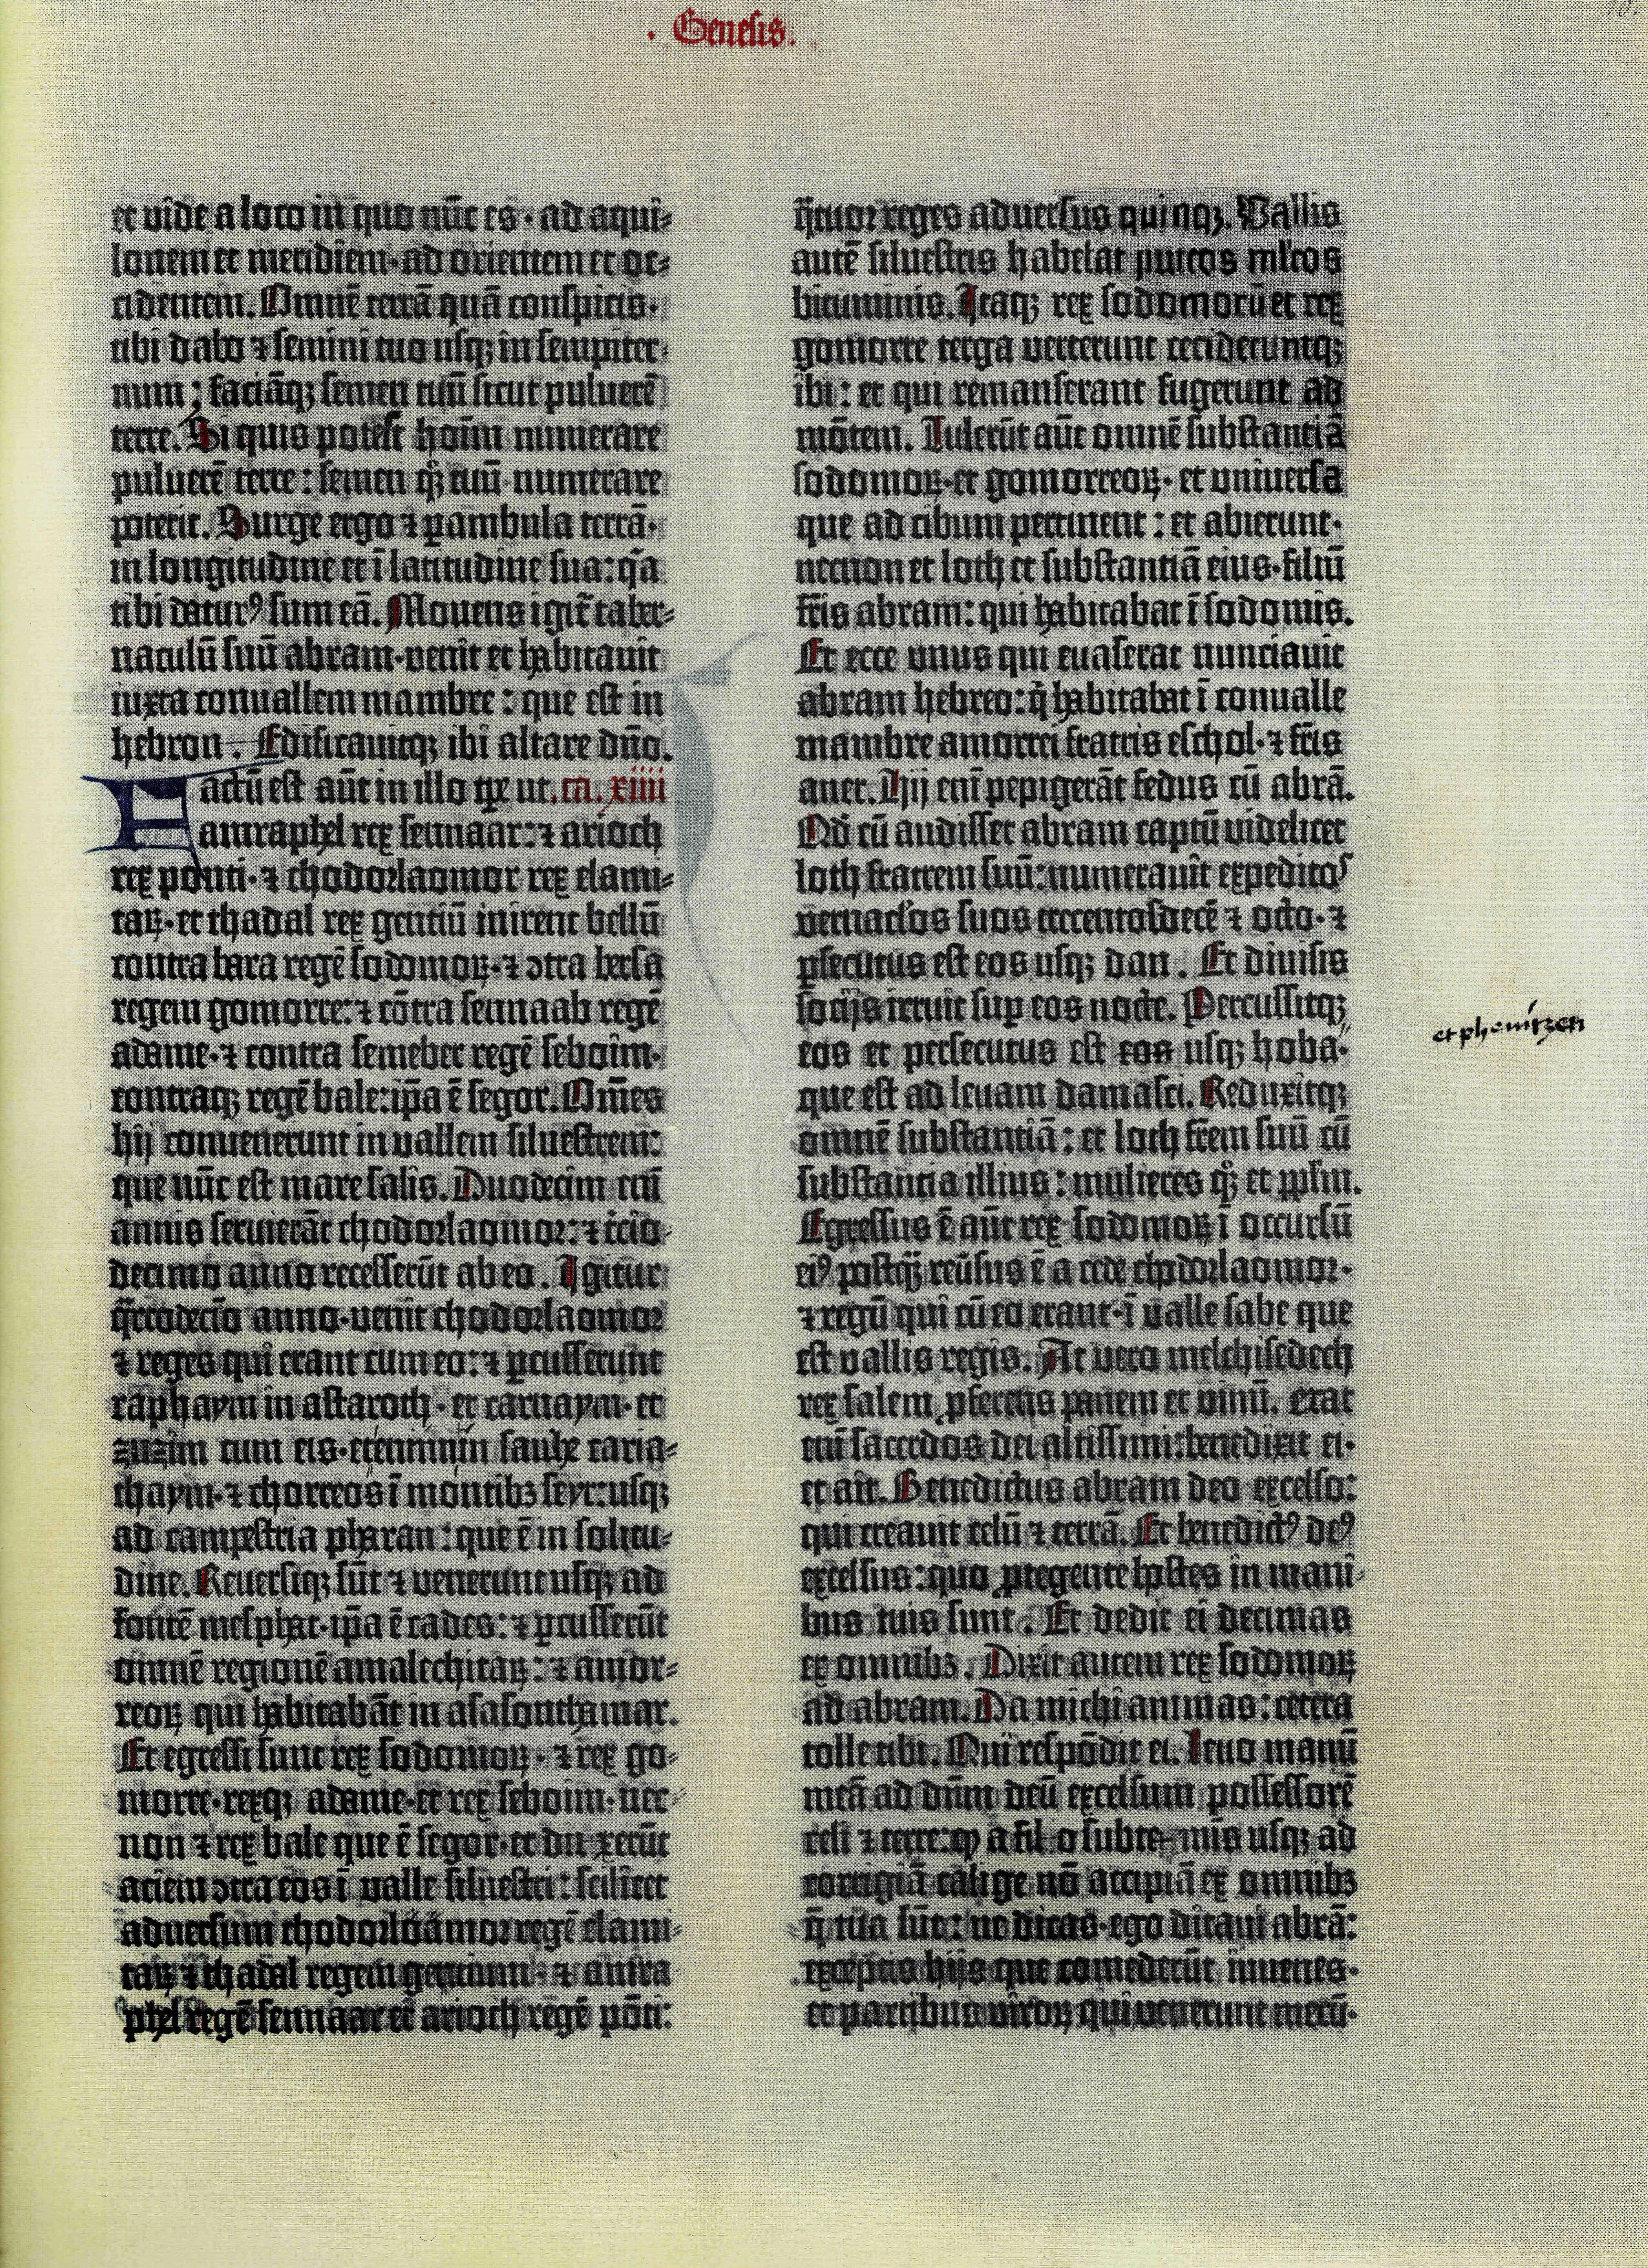 . Genesis.
et vide a loco in quo nūc es · ad aqui-
lonem et meridiem · ad orientem et oc-
cidentem. Omnē terrā quā conspicis ·
tibi dabo ⁊ semini tuo usqꝫ in sempiter-
num ; faciāqꝫ semen tuū sicut puluerē
terre. Si quis potest hoīm numerare
puluerē terre : semen qꝫ tuū numerare
poterit. Surge ergo ⁊ ꝑambula terrā ·
in longitudine et ī latitudine sua : q̄a
tibi daturꝰ sum eā. Mouens igit̄ taber-
naculū suū abram · venit et habitauit
iuxta conuallem mambre : que est in
hebron . Edificauitqꝫ ibi altare dn̄o.
Factū est aūt in illo tꝑe ut . ca. xiiii
amraphel rex sennaar : ⁊ arioch
rex ponti · ⁊ chodorlaomor rex elami-
taꝝ · et thadal rex gentiū inirent bellū
contra bara regē sodomoꝝ · ⁊ ɔtra bersa
regem gomorre : ⁊ cōtra sennaab regē
adame · ⁊ contra semeber regē seboim ·
contraqꝫ regē bale : ip̄a ē segor. Om̄es
hij conuenerunt in vallem siluestrem :
que nūc est mare salis. Duodecim em̄
annis seruierāt chodorlaomor : ⁊ t̄cio-
decimo anno recesserūt ab eo . Igitur
q̄rtodecīo anno · venit chodorlaomor
⁊ reges qui erant cum eo : ⁊ ꝑcusserunt
raphaym in astaroth · et carnaym · et
zuzim cum eis · et emim in sauhe caria-
thaym · ⁊ chorreos ī montibꝫ seyr : usqꝫ
ad campestria pharan : que ē in solitu-
dine. Reuersiqꝫ sūt ⁊ venerunt usqꝫ ad
fontē mesphat · ip̄a ē cades : ⁊ ꝑcusserūt
omnē regionē amalechitaꝝ : ⁊ amor-
reoꝝ qui habitabāt in asasonthamar.
Et egressi sunt rex sodomoꝝ · ⁊ rex go-
morre · rexqꝫ adame · et rex seboim · nec-
non ⁊ rex bale que ē segor · et direxerūt
aciem ɔtra eos ī valle siluestri : scilicet
aduersum chodorlaomor regē elami-
taꝝ ⁊ thadal regem gentium · ⁊ amra
phel regē sennaar et arioch regē pōti :
q̄tuor reges aduersus quinqꝫ. Vallis
autē siluestris habebat puteos ml'tos
bituminis. Itaqꝫ rex sodomorū et rex
gomorre terga verterunt cecideruntqꝫ
ibi : et qui remanserant fugerunt ad
mōtem. Tulerūt aūt omnē substantiā
sodomoꝝ · et gomorreoꝝ · et universa
que ad cibum pertinent : et abierunt ·
necnon et loth et substantiā eius · filiū
fr̄is abram : qui habitabat ī sodomis.
Et ecce unus qui evaserat nunciauit
abram hebreo : q̄ habitabat ī conualle
mambre amorrei fratris eschol · ⁊ fr̄is
aner. Hij em̄ pepigerāt fedus cū abrā.
Qd̄ cū audisset abram captū videlicet
loth fratrem suū : numerauit expeditos
vernacl'os suos trecentosdecē ⁊ octo · ⁊
ꝑsecutus est eos usqꝫ dan . Et diuisis
socijs irruit suꝑ eos nocte. Percussitqꝫ
eos et persecutus est eos usqꝫ hoba ·
et phenitzen
que est ad leuam damasci. Reduxitqꝫ
omnē substantiā : et loth fr̄em suū cū
substantia illius : mulieres qꝫ et pp̄lm.
Egressus ē aūt rex sodomoꝝ ī occursū
eiꝰ postqꝫ reūsus ē a cede chodorlaomor ·
⁊ regū qui cū eo erant · ī valle sabe que
est vallis regis. At vero melchisedech
rex salem ꝓferens panem et vinū. erat
em̄ sacerdos dei altissimi : benedixit ei ·
et ait. Benedictus abram deo excelso :
qui creauit celū ⁊ terrā. Et benedictꝰ deꝰ
excelsus : quo ꝓtegente hostes in mani-
bus tuis sunt . Et dedit ei decimas
ex omnibꝫ. Dixit autem rex sodomoꝝ
ad abram. Da michi animas : cetera
tolle tibi. Qui respōdit ei. Leuo manū
meā ad dn̄m deū excelsum possessorē
celi ⁊ terre : ꝙ a filo subtemīs usqꝫ ad
corrigiā calige nō accipiā ex omnibꝫ
q̄ tua sūt : ne dicas · ego ditaui abrā :
exceptis hijs que comederūt iuuenes ·
et partibus viroꝝ qui venerunt mecū ·